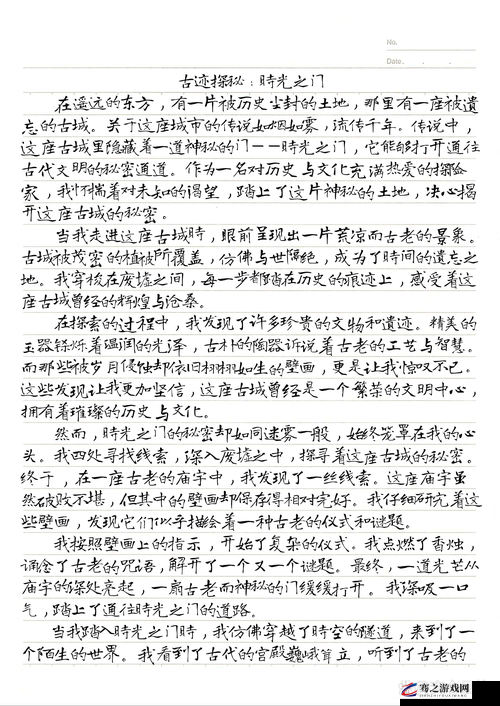 No.
Date. . .
古迹探秘：時光之门
在遥远的东方，有一片被历史尘封的土地，那里有一座被遺
忘的古城。关于这座城市的传说如烟如雾，流传千年。传说中，
这座古城里隐藏着一道神秘的门——時光之门，它能够打开通往
古代文明的秘密通道。作为一名对历史与文化充满热爱的探险
家，我怀揣着对未知的渴望，踏上了这片神秘的土地，决心揭
开这座古城的秘密。
当我走进这座古城時，眼前呈现出一片荒凉而古老的景象。
古城被茂密的植被所覆盖，仿佛与世隔绝，成为了時间的遺忘之
地。我穿梭在废墟之间，每一步都踏在历史的痕迹上，感受着这
座古城曾经的辉煌与沧桑。
在探索的过程中，我发现了许多珍贵的文物和遺迹。精美的
玉器铄烁着温润的光泽，古朴的陶器诉说着古老的工艺与智慧。
而那些被岁月侵蚀却依旧栩栩如生的壁画，更是让我惊叹不已。
这些发现让我更加坚信，这座古城曾经是一个繁荣的文明中心，
拥有着璀璨的历史与文化。
然而，時光之门的秘密却如同迷雾一般，始终笼罩在我的心
头。我四处寻找线索，深入废墟之中，探寻着这座古城的秘密。
终于，在一座古老的庙宇中，我发现了一丝线索。这座庙宇虽
然破败不堪，但其中的壁画却保存得相对完好。我仔细研究着这
些壁画，发现它们似乎描绘着一种古老的仪式和谜题。
我按照壁画上的指示，开始了复杂的仪式。我点燃了香烛，
诵念了古老的咒语，解开了一个又一个谜题。最终，一道光芒从
庙宇的深处亮起，一扇古老而神秘的门缓缓打开。我深吸一口
气，踏上了通往時光之门的道路。
当我踏入時光之门時，我仿佛穿越了時空的隧道，来到了一
个陌生的世界。我看到了古代的宫殿巍峨耸立，听到了古老的
骞之游戏网